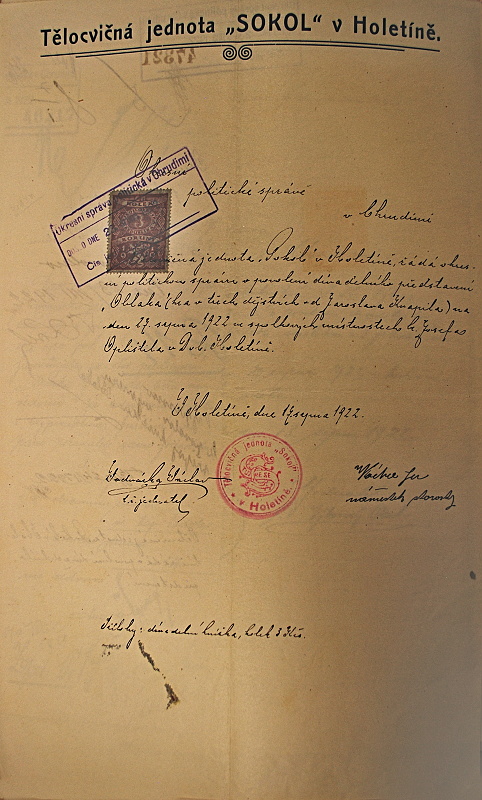 Tělocvičná jednota „SOKOL“ v Holetíně.
politické správě
v Chrudimi
Okresní správa politická v Chrudimi
DNE 2
Čís
3
jednota „Sokol“ v Holetíně, žádá okres-
ní politickou správu o povolení divadelního představení
„Oblaka“ (hra v třech dějstvích od Jaroslava Kvapila) na
den 27. srpna 1922 ve spolkových místnostech u Josefa
v Dol. Holetíně.
V Holetíně, dne 17. srpna 1922.
Václav
t. č. jednatel
Tělocvičná jednota „Sokol“
v Holetíně.
náměstek starosty
Přílohy: divadelní knížka, kolek 3 Kčs.